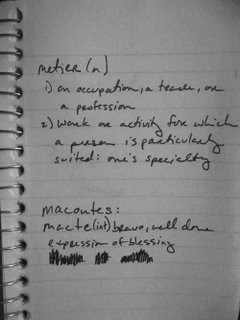 metier (n)
1) an occupation, a trade, or
a profession
2) work or activity for which
a person is particularly
suited: one's specialty
macoutes:
macte (int) bravo, well done
expression of blessing